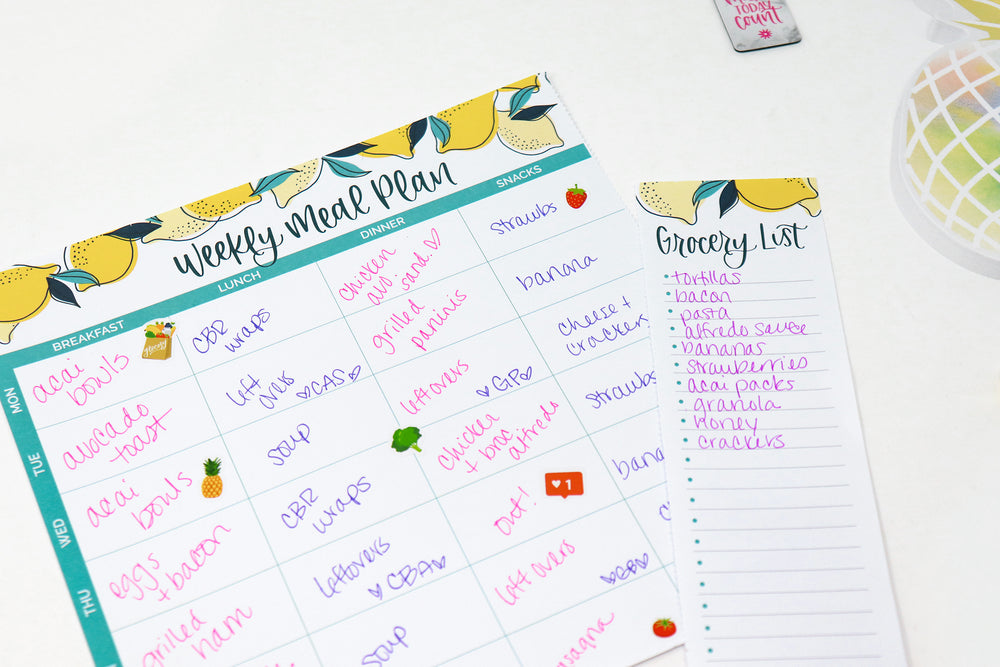 TODAY
COUNT
Weekly Meal Plan
BREAKFAST
LUNCH
DINNER
SNACKS
MON
acai
bowls
grocery
CBR
wraps
chicken
avo. sand.
strawbs
TUE
avocado
toast
left
overs
♡CAS♡
grilled
paninis
banana
WED
acai
bowls
soup
leftovers
♡GP♡
cheese +
crackers
THU
eggs
+ bacon
CBR
wraps
chicken
+ broc
alfredo
strawbs
grilled
ham
leftovers
♡CBA♡
out!
1
bana
soup
leftovers
asagna
Grocery List
tortillas
bacon
pasta
alfredo sauce
bananas
strawberries
acai packs
granola
honey
crackers